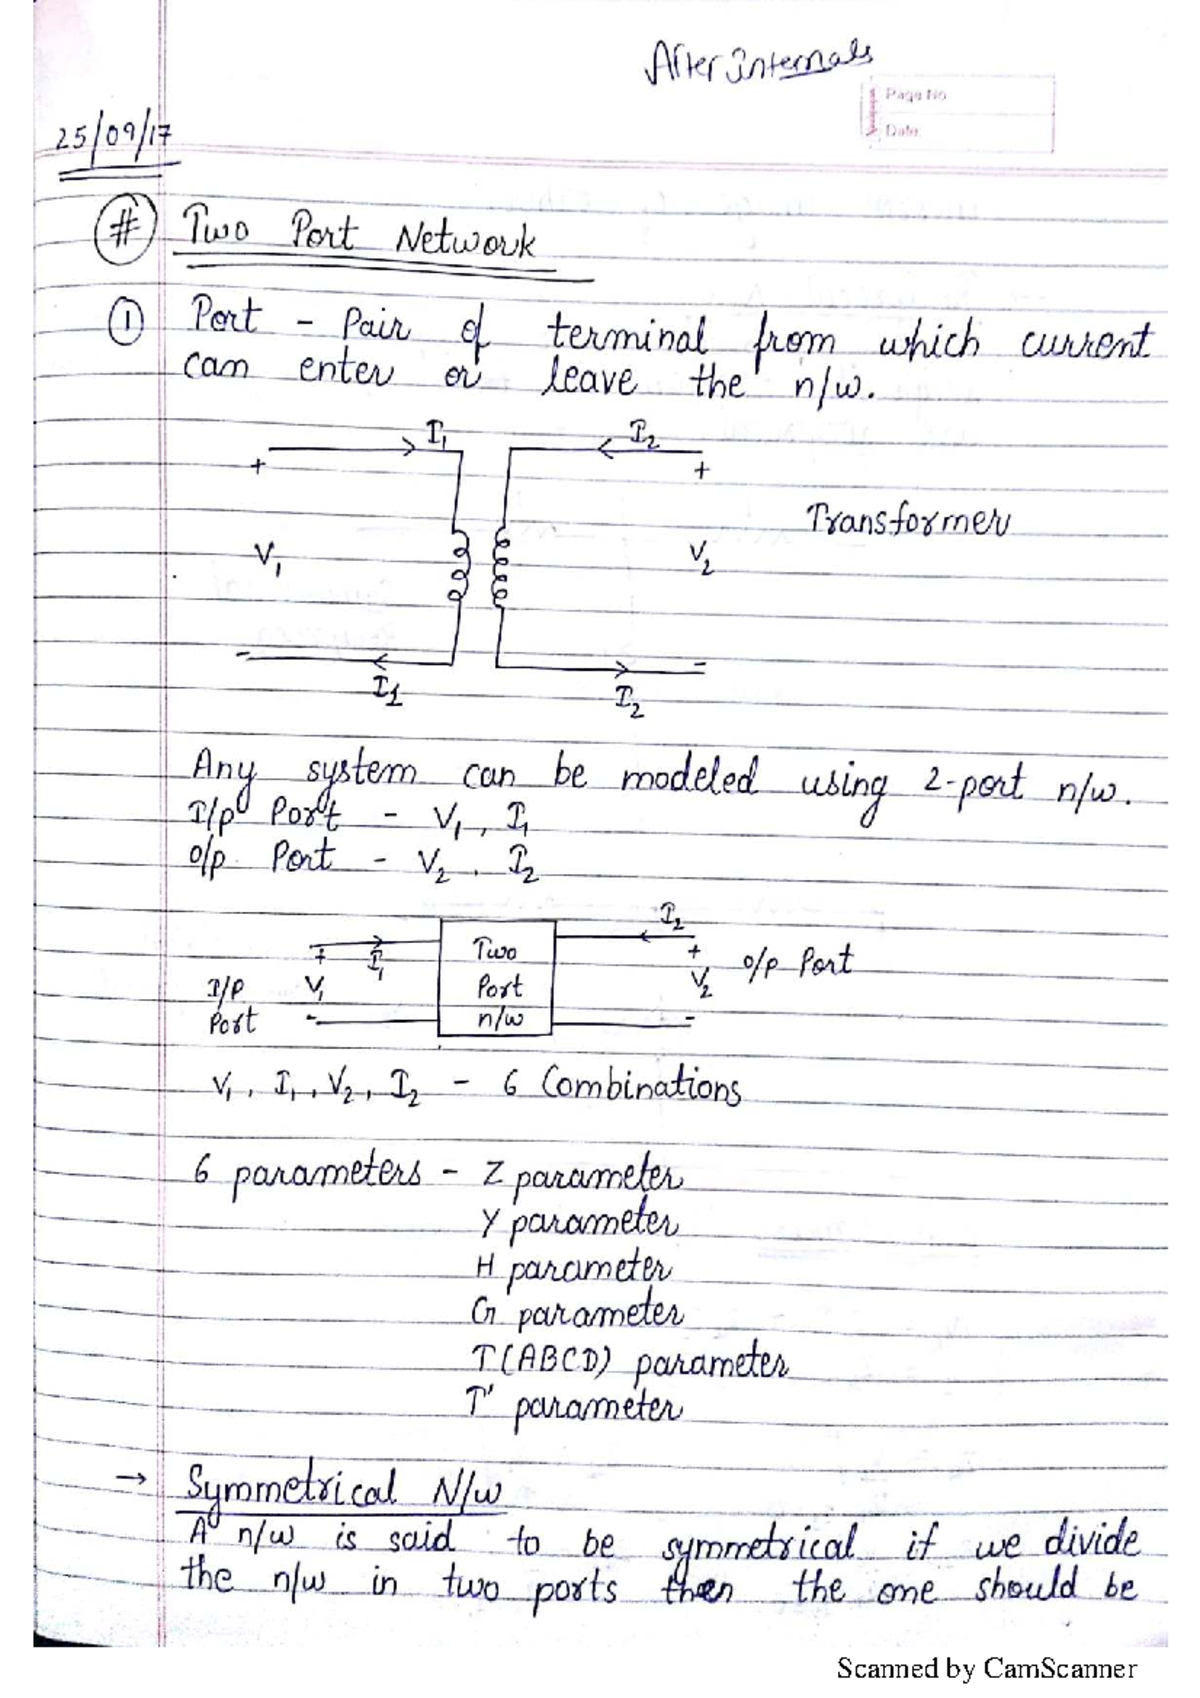 After internals
Page No
Date:
25/09/17
# Two Port Network
① Port - Pair of terminal from which current
can enter or leave the n/w.
I1 I2
+ +
Transformer
V1 V2
- -
I1 I2
Any system can be modeled using 2-port n/w.
I/p Port - V1, I1
O/p Port - V2, I2
I2
+ I1 Two + O/p Port
I/p V1 Port V2
Port - n/w -
V1, I1, V2, I2 - 6 Combinations
6 parameters - Z parameter
Y parameter
H parameter
G parameter
T(ABCD) parameter
T' parameter
→ Symmetrical N/w
A n/w is said to be symmetrical if we divide
the n/w in two ports then the one should be
Scanned by CamScanner